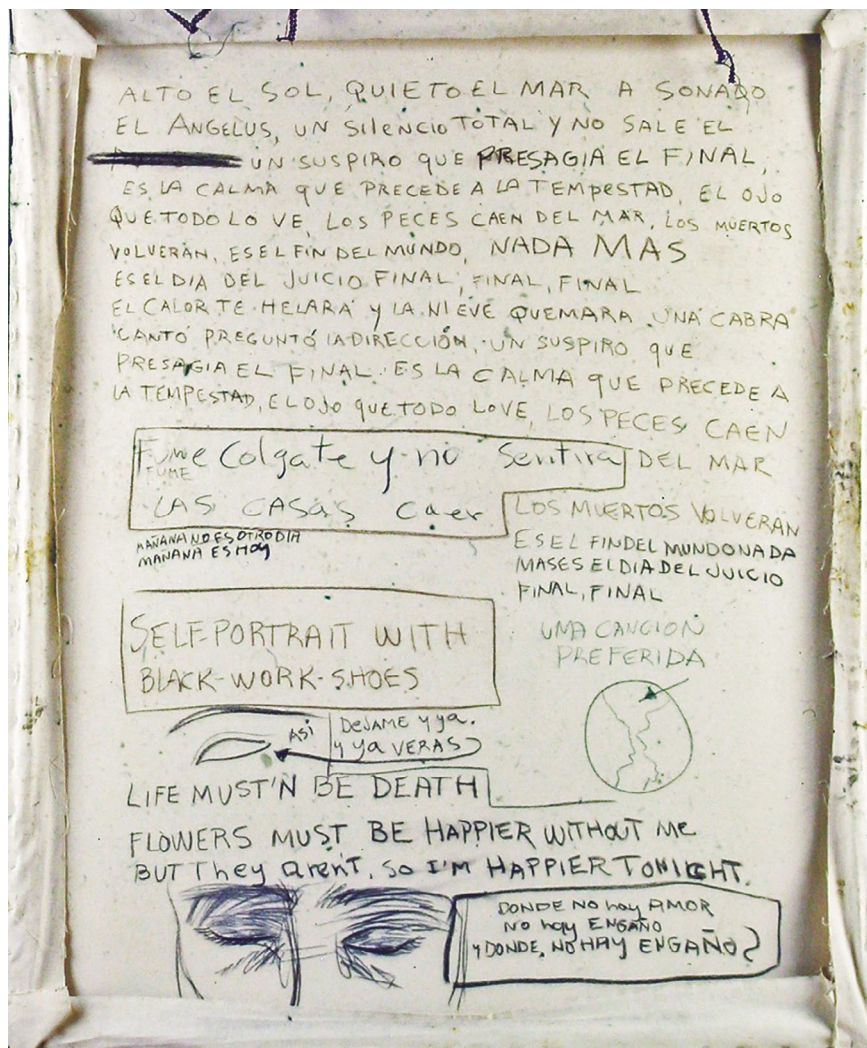 ALTO EL SOL, QUIETO EL MAR A SONADO
EL ANGELUS, UN SILENCIO TOTAL Y NO SALE EL
UN SUSPIRO QUE PRESAGIA EL FINAL,
ES LA CALMA QUE PRECEDE A LA TEMPESTAD, EL OJO
QUE TODO LO VE, LOS PECES CAEN DEL MAR, LOS MUERTOS
VOLVERAN, ES EL FIN DEL MUNDO, NADA MAS
ES EL DIA DEL JUICIO FINAL, FINAL, FINAL
EL CALOR TE HELARA Y LA NIEVE QUEMARA UNA CABRA
CANTÓ PREGUNTÓ LA DIRECCIÓN, UN SUSPIRO QUE
PRESAGIA EL FINAL. ES LA CALMA QUE PRECEDE A
LA TEMPESTAD, EL OJO QUE TODO LO VE, LOS PECES CAEN
DEL MAR
Fume Colgate y no Sentira
FUME
LAS CASAS Caer
LOS MUERTOS VOLVERAN
ES EL FIN DEL MUNDO NADA
MAS ES EL DIA DEL JUICIO
FINAL, FINAL
MAÑANA NO ES OTRO DIA
MAÑANA ES HOY
UNA CANCION
PREFERIDA
SELF-PORTRAIT WITH
BLACK-WORK-SHOES
ASI
DEJAME y ya.
y ya VERAS
LIFE MUST'N BE DEATH
FLOWERS MUST BE HAPPIER WITHOUT ME
BUT They aren't, SO I'M HAPPIER TONIGHT.
DONDE NO hay AMOR
NO hay ENGAÑO
Y DONDE, NO HAY ENGAÑO?